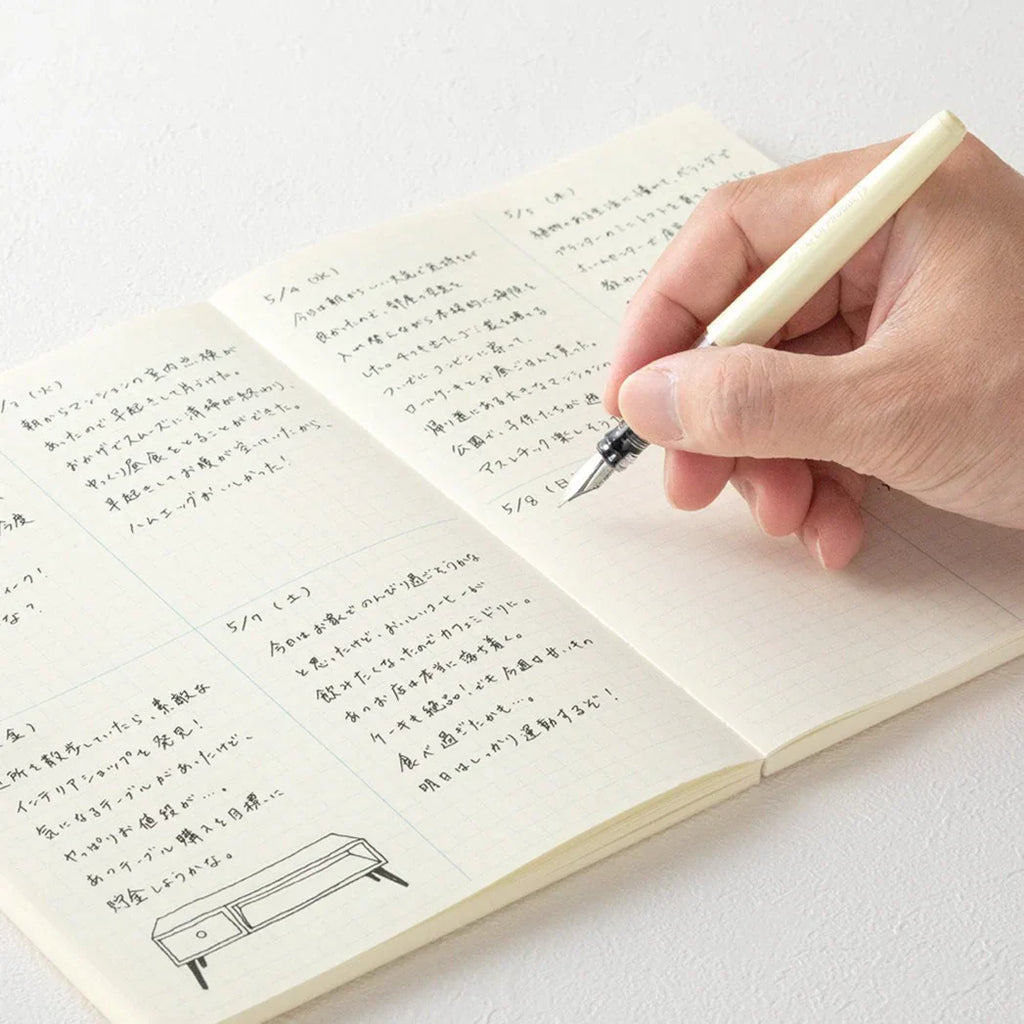 /3 (火)
朝からマンションの室内点検が
あったので早起きして片づけた。
おかげでスムーズに清掃が終わり、
ゆっくり昼食をとることができた。
早起きしてお腹が空いていたから、
ハムエッグおいしかった!
今度
ィーク!
な?
5/4 (水)
今日は朝からいい天気で気持ちが
良かったので、部屋の空気を
入れ替えながら本格的に掃除を
した。
ついでにコンビニに寄って、
ロールケーキとお昼ごはんを買った。
帰道にある大きなマンションの
公園で、子供たちが遊
アスレチック楽しそう
5/5 (木)
植物のある生活に憧れて、ベランダで
プランターのミニトマトを育
ホームセンターで
教わっ
(金)
近所を散歩していたら、素敵な
インテリアショップを発見!
気になるテーブルがあったけど、
やっぱりお値段が…。
あのテーブル購入を目標に
貯金しようかな。
5/7 (土)
今日はお家でのんびり過ごそうかな
と思ったけど、おいしいコーヒーが
飲みたくなったのでカフェミドリに。
あのお店は本当に落ち着く。
ケーキも絶品!でも今週は甘いもの
食べ過ぎたかも…。
明日はしっかり運動するぞ!
5/8 (日